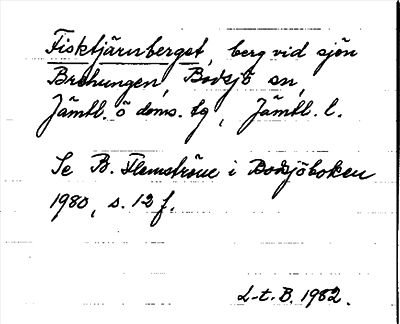 Fisktjärnberget, berg vid sjön
Brehungen, Bodsjö sn,
Jämtl. ö doms. tg, Jämtl. l.
Se B. Flemström i Bodsjöboken
1980, s. 12 f.
L-t. B. 1982.